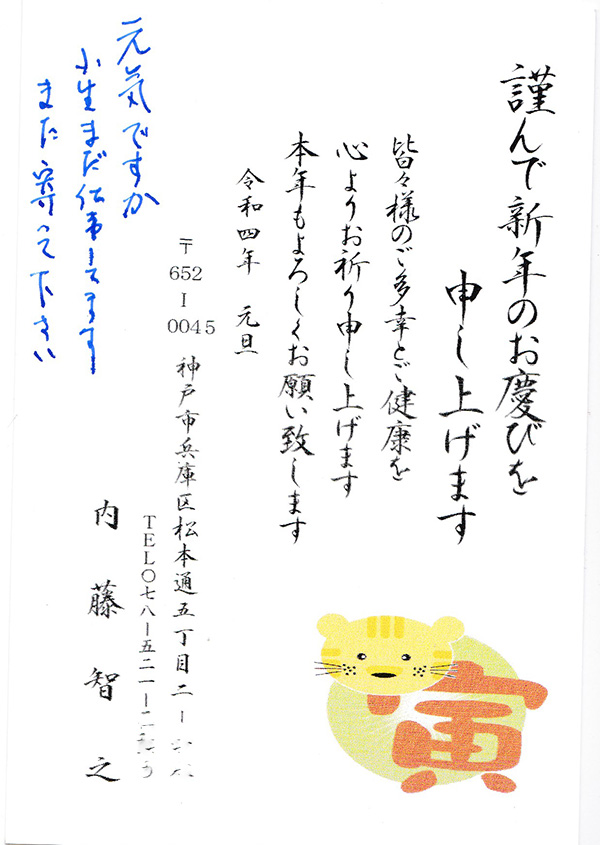 謹んで新年のお慶びを
申し上げます
皆々様のご多幸とご健康を
心よりお祈り申し上げます
本年もよろしくお願い致します
令和四年 元旦
〒652-0045 神戸市兵庫区松本通五丁目二ー
TEL〇七八ー五二一ー二
内藤智之
元気ですか
小生まだ仕事してます
また寄って下さい
寅